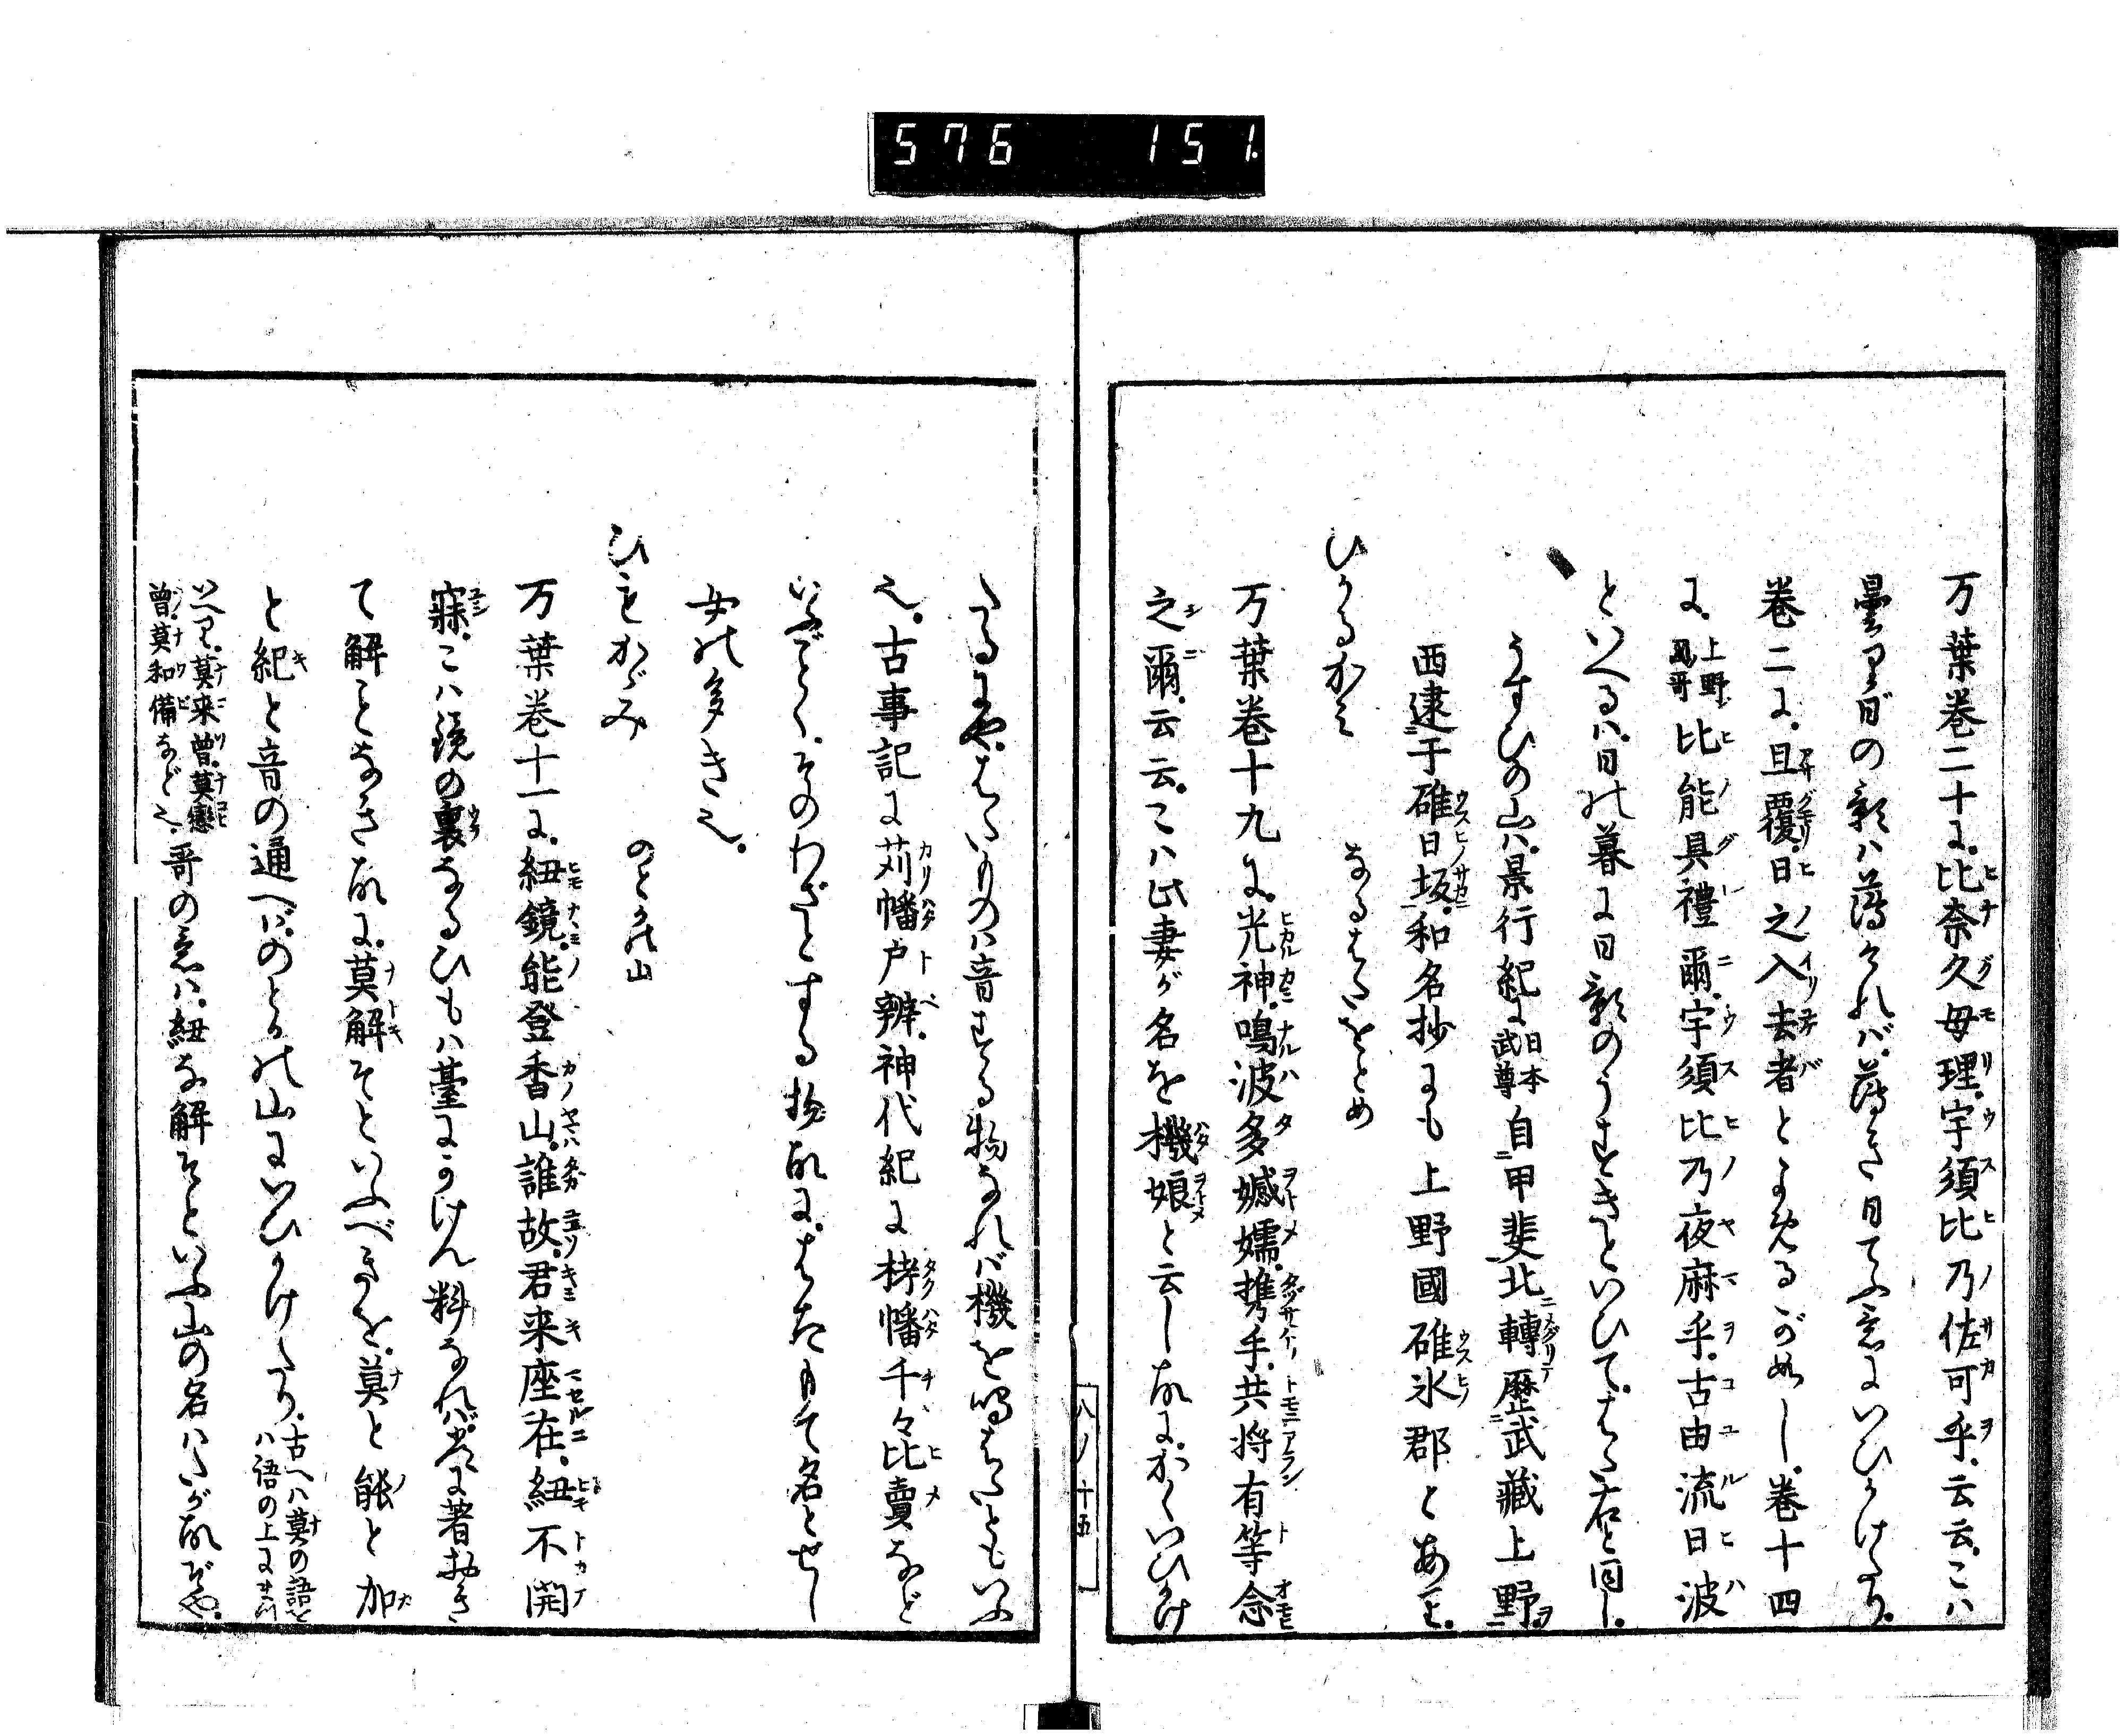 576 151
万葉巻二十に。比奈久母理。宇須比乃佐可乎。云云。こハ
曇る日の影ハ薄けれバ。薄き日てふ意にいひかけたり。
巻二に。旦覆。日之入去者とよめるがごとし。巻十四
に。上野国哥 比能具禮爾。宇須比乃夜麻乎。古由流日波
といへるハ。日の暮に日影のうすきといひて。はた右と同し。
うすひの山ハ。景行紀に 日本武尊 自甲斐北轉歴武藏上野。
西逮于碓日坂。和名抄にも上野國碓氷郡とあり。
ひかるかみ なるはたをとめ
万葉巻十九に。光神。鳴波多𡢳嬬。携手。共将有等念
之爾。云云。こハ此妻が名を機娘と云し故に。かくいひかけ
八ノ十五
たるにや。はたものハ音する物なれバ機を鳴はたともいふ
也。古事記に苅幡戸辨。神代紀に栲幡千々比賣など
いふごとく。そのわざとする物故に。はたもて名とせし
女の多き也。
ひもかゞみ のとかの山
万葉巻十一に。紐鏡。能登香山。誰故。君来座在。紐不開
寐。こハ鏡の裏なるひもハ臺にかけん料なれバ。常に著おき
て解ことなき故に。莫解そといふべきを。莫と能と加
と紀と音の通へバ。のとかの山にいひかけたり。古へハ莫の語をハ語の上に
いへり。莫来曽。莫戀曽。莫和備など也。哥の意ハ。紐な解そといふ山の名ハたが故ぞや。